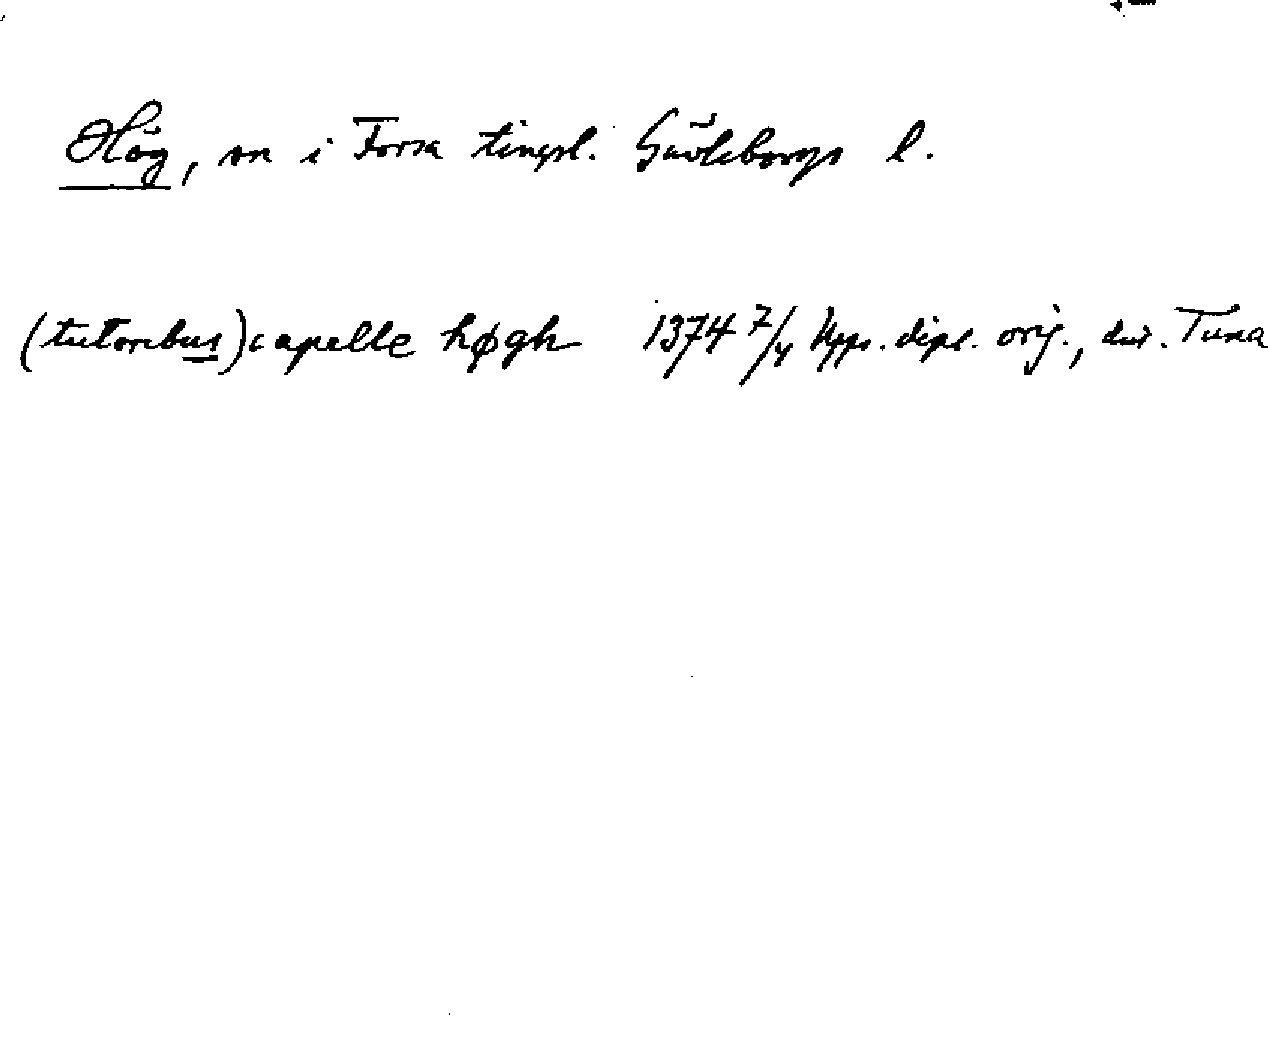 Hög, sn i Forsa tingsl. Gävleborgs l.
(tutoribus) capelle høgh 1374 7/4 Upps. dipl. orig., dat. Tuna